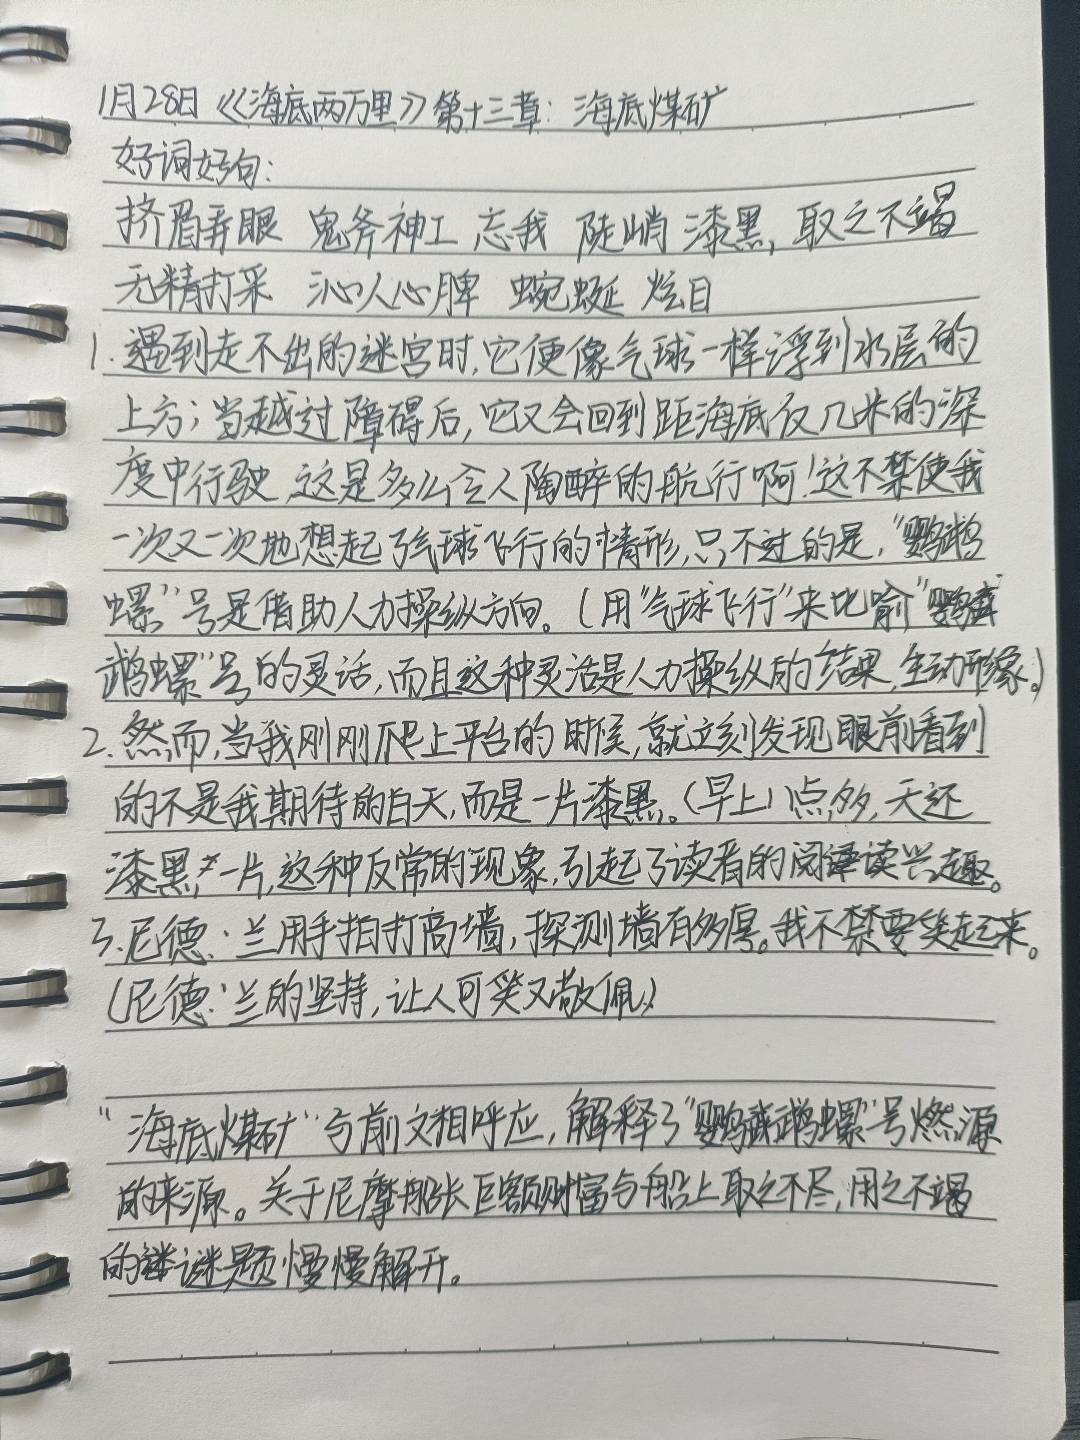 1月28日《海底两万里》第十三章：海底煤矿
好词好句：
挤眉弄眼 鬼斧神工 忘我 陡峭 漆黑 取之不竭
无精打采 沁人心脾 蜿蜒 炫目
1.遇到走不出的迷宫时,它便像气球一样浮到水层的
上方；当越过障碍后,它又会回到距海底仅几米的深
度中行驶,这是多么令人陶醉的航行啊!这不禁使我
一次又一次地想起了气球飞行的情形,只不过的是,"鹦鹉
螺"号是借助人力操纵方向。(用"气球飞行"来比喻"鹦
鹉螺"号的灵活,而且这种灵活是人力操纵的结果,生动形象。)
2.然而,当我刚刚爬上平台的时候,就立刻发现眼前看到
的不是我期待的白天,而是一片漆黑。(早上)八点多,天还
漆黑一片,这种反常的现象,引起了读者的阅读兴趣。
3.尼德·兰用手拍打高墙,探测墙有多厚。我不禁要笑起来。
(尼德·兰的坚持,让人可笑又敬佩。)
"海底煤矿"与前文相呼应,解释了"鹦鹉螺"号燃源
的来源。关于尼摩船长巨额财富与船上取之不尽,用之不竭
的谜题慢慢解开。